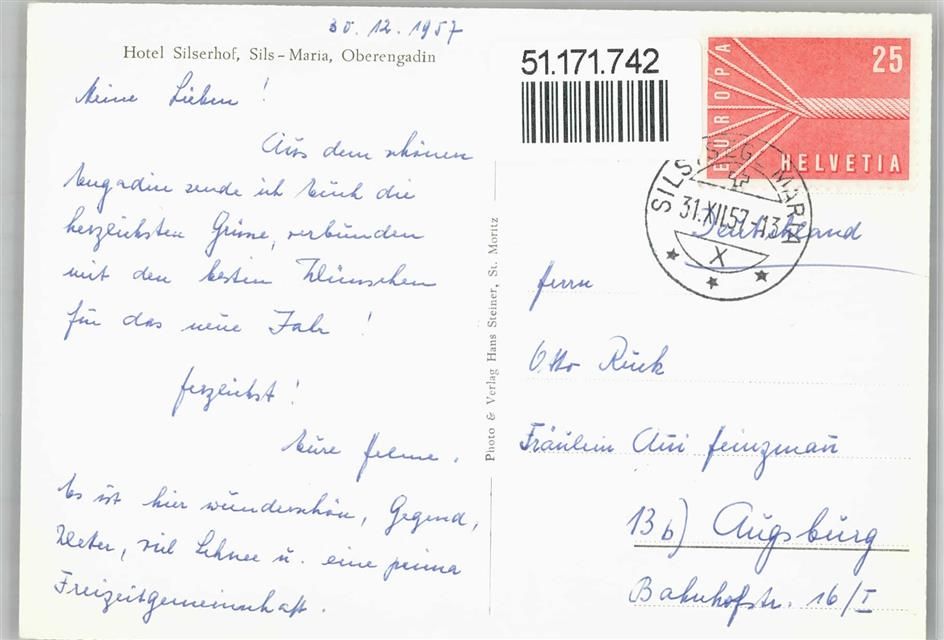 30.12.1957
Hotel Silserhof, Sils-Maria, Oberengadin
Meine Lieben!
Aus dem schönen
Engadin sende ich Euch die
herzlichsten Grüsse, verbunden
mit den besten Wünschen
für das neue Jahr!
Herzlichst!
Eure Helene.
Es ist hier wunderschön, Gegend,
Wetter, viel Schnee u. eine prima
Freizeitgemeinschaft.
Photo & Verlag Hans Steiner, St. Moritz
51.171.742
EUROPA
25
HELVETIA
SILS/SEGL MARIA
31.XII.57.-13
X
Deutschland
Herrn
Otto Rück
Fräulein Ani Heinzmann
13b) Augsburg
Bahnhofstr. 16/I